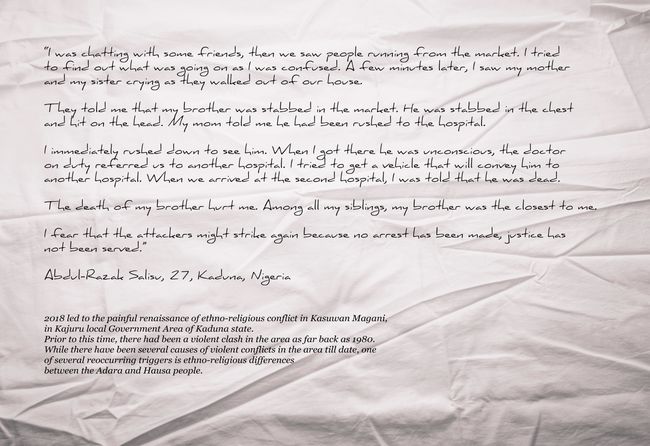 "I was chatting with some friends, then we saw people running from the market. I tried
to find out what was going on as I was confused. A few minutes later, I saw my mother
and my sister crying as they walked out of our house.
They told me that my brother was stabbed in the market. He was stabbed in the chest
and hit on the head. My mom told me he had been rushed to the hospital.
I immediately rushed down to see him. When I got there he was unconscious, the doctor
on duty referred us to another hospital. I tried to get a vehicle that will convey him to
another hospital. When we arrived at the second hospital, I was told that he was dead.
The death of my brother hurt me. Among all my siblings, my brother was the closest to me.
I fear that the attackers might strike again because no arrest has been made, justice has
not been served."
Abdul-Razak Salisu, 27, Kaduna, Nigeria
2018 led to the painful renaissance of ethno-religious conflict in Kasuwan Magani,
in Kajuru local Government Area of Kaduna state.
Prior to this time, there had been a violent clash in the area as far back as 1980.
While there have been several causes of violent conflicts in the area till date, one
of several reoccurring triggers is ethno-religious differences
between the Adara and Hausa people.